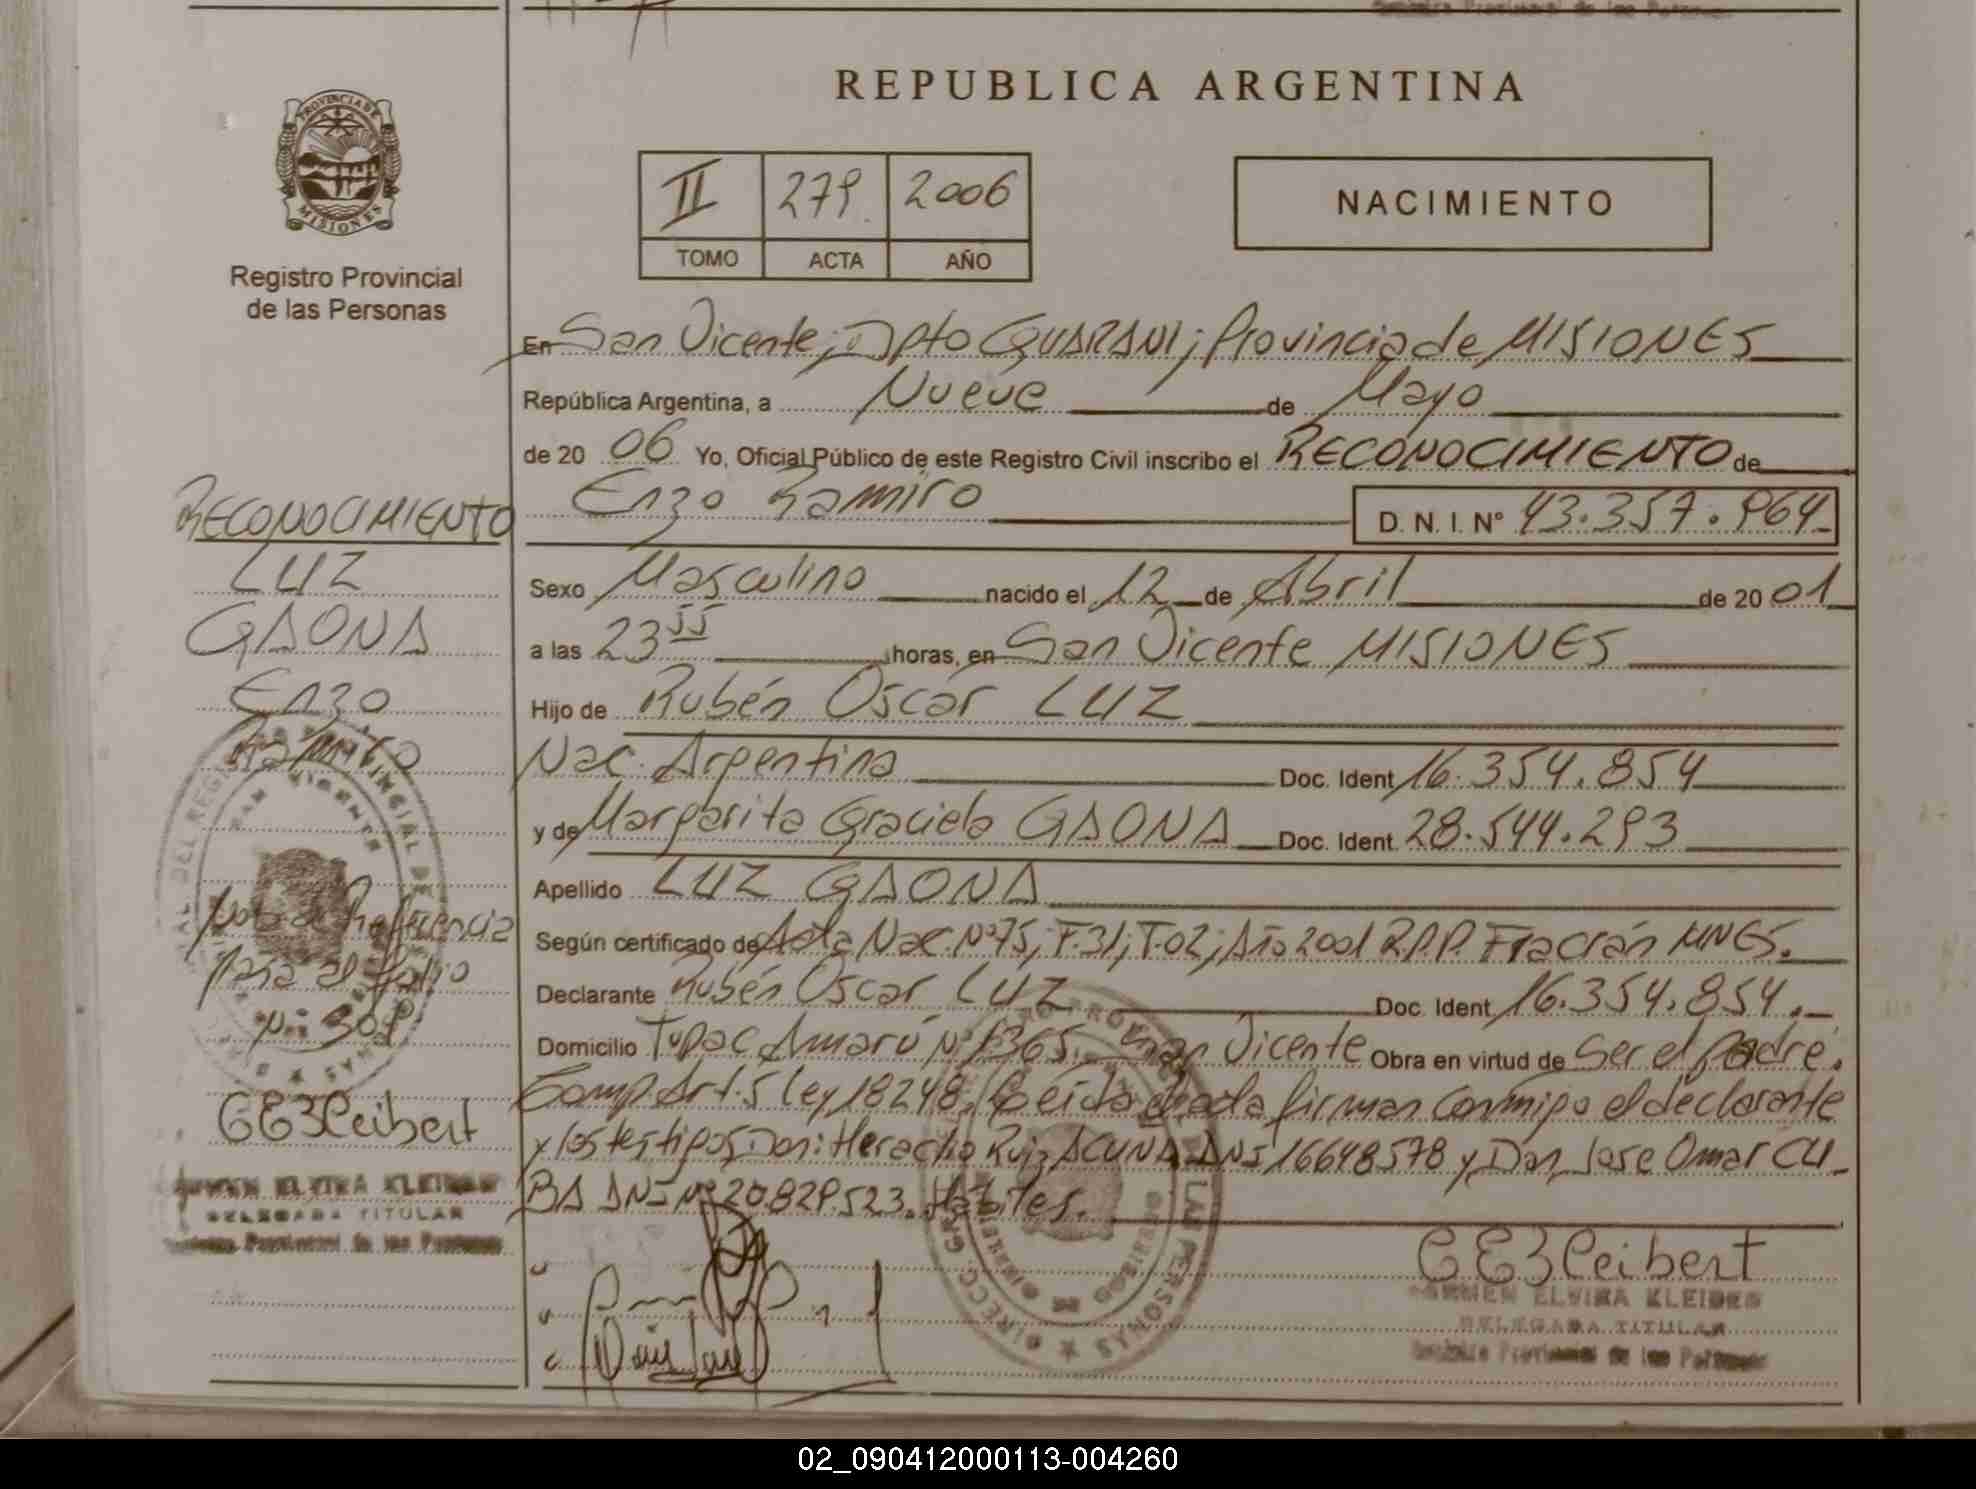 REPUBLICA ARGENTINA
PROVINCIA DE
MISIONES
Registro Provincial
de las Personas
II 279. 2006
TOMO ACTA AÑO
NACIMIENTO
En San Vicente; Dpto GUARANI; Provincia de MISIONES
República Argentina, a Nueve de Mayo
de 20 06 Yo, Oficial Público de este Registro Civil inscribo el RECONOCIMIENTO de
Enzo Ramiro D. N. I. Nº 43.357.964
Sexo Masculino nacido el 12 de Abril de 20 01
a las 23 55 horas, en San Vicente MISIONES
Hijo de Rubén Oscar LUZ
Nac. Argentina Doc. Ident 16.354.854
y de Margarita Graciela GAONA Doc. Ident. 28.544.293
Apellido LUZ GAONA
Según certificado de Acta Nac. Nº 75; F.31; T.02; Año 2001 R.P.P. Fracrán MNES.
Declarante Rubén Oscar LUZ Doc. Ident 16.354.854.
Domicilio Tupac Amarú Nº 1365. San Vicente Obra en virtud de Ser el padre.
Comp. Art. 5 Ley 18248. Leída el acta firman conmigo el declarante
y los testigos Don: Heraclio Ruiz ACUÑA DNI 16648578 y Don Jose Omar CU
BA DNI Nº 20.829.523. Hábiles.
RECONOCIMIENTO
LUZ
GAONA
Enzo
Ramiro
Nota de Referencia
Pasa al folio
Nº 309
CEKleibert
DELEGADA TITULAR
CEKleibert
CARMEN ELVIRA
DELEGADA TITULAR
Registro Provincial de las Personas
02_090412000113-004260